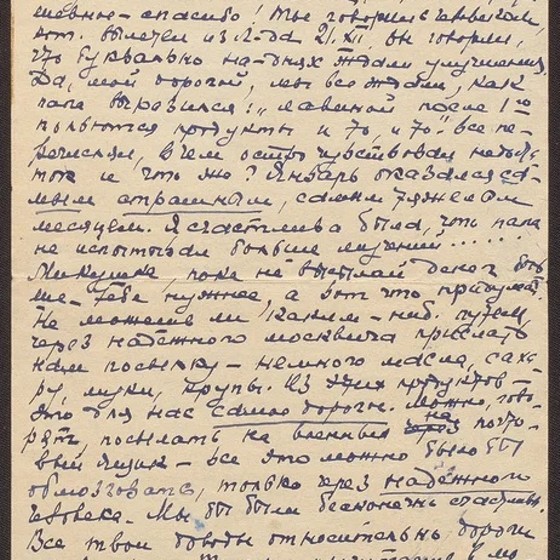 шевное – спасибо! Мы говорили с человеком,
кот. вылетел из Л-да 21.XII, он говорил,
что буквально на-днях ждали улучшения.
Да, мой дорогой, мы все ждали, как
папа выразился: „лавиной после 1го
появятся продукты и то, и то" – все пе-
речислял, в чем остро чувствовал недоста-
ток и что же? Январь оказался са-
мым страшным, самым тяжелым
месяцем. Я счастлива была, что папа
не испытывал больше мучений......
Микушка, пока не высылай денег больше
– тебе нужнее, а вот что придумай.
Не можешь ли каким-ниб. путем,
через надежного москвича прислать
нам посылку – немного масла, саха-
ру, муки, крупы. Из этих продуктов –
это для нас самое дорогое. Можно, гово-
рят, посылать на военный через на почто-
вый ящик – все это можно было бы
обмозговать, только через надежного
человека. Мы бы были бесконечно счастливы.
Все твои доводы относительно дороги